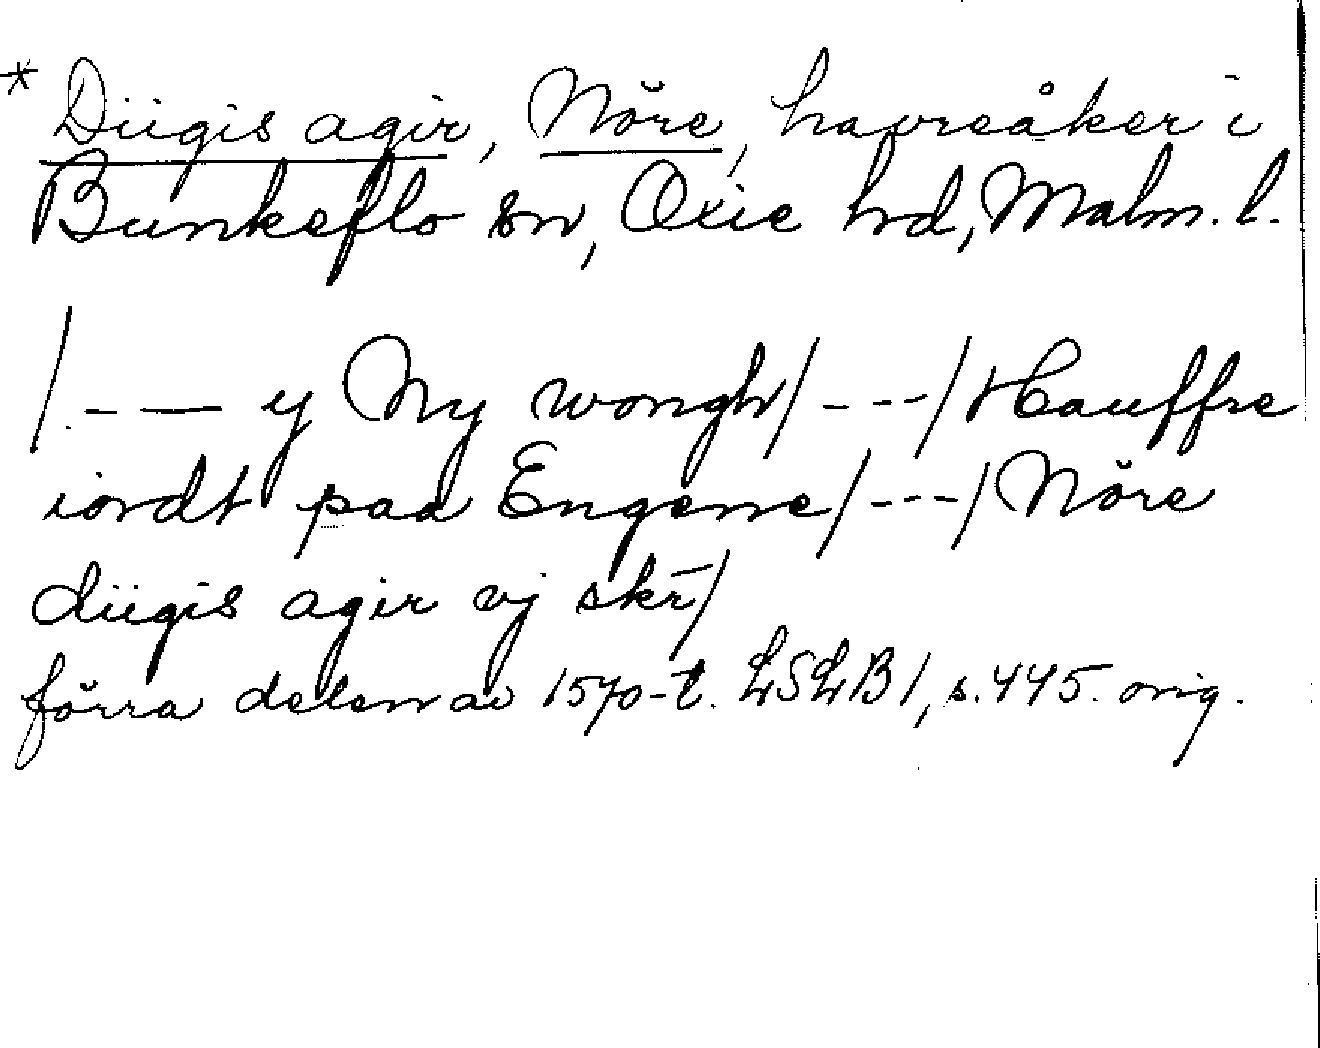 * Diigis agir, Nöre, havreåker i
Bunkeflo sn, Oxie hd, Malm. l.
/--- y Ny wongh/---/Hauffre
iordt paa Engenne/---/Nöre
diigis agir vj skr̄/
förra delen av 1570-t. LSLB 1, s. 445. orig.